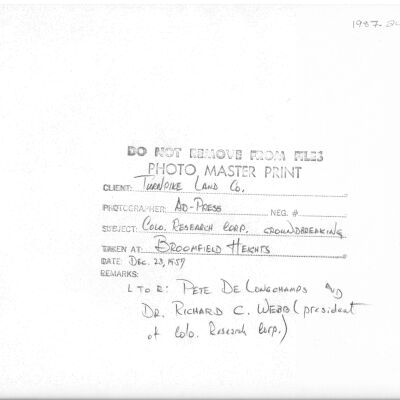 1987-
DO NOT REMOVE FROM FILES
PHOTO MASTER PRINT
CLIENT: TURNPIKE LAND CO.
PHOTOGRAPHER: AD-PRESS NEG. #
SUBJECT: COLO. RESEARCH CORP. GROUNDBREAKING
TAKEN AT: BROOMFIELD HEIGHTS
DATE: DEC. 23, 1957
REMARKS:
L TO R: PETE DE LONGCHAMPS AND
DR. RICHARD C. WEBB (president
of Colo. Research Corp.)